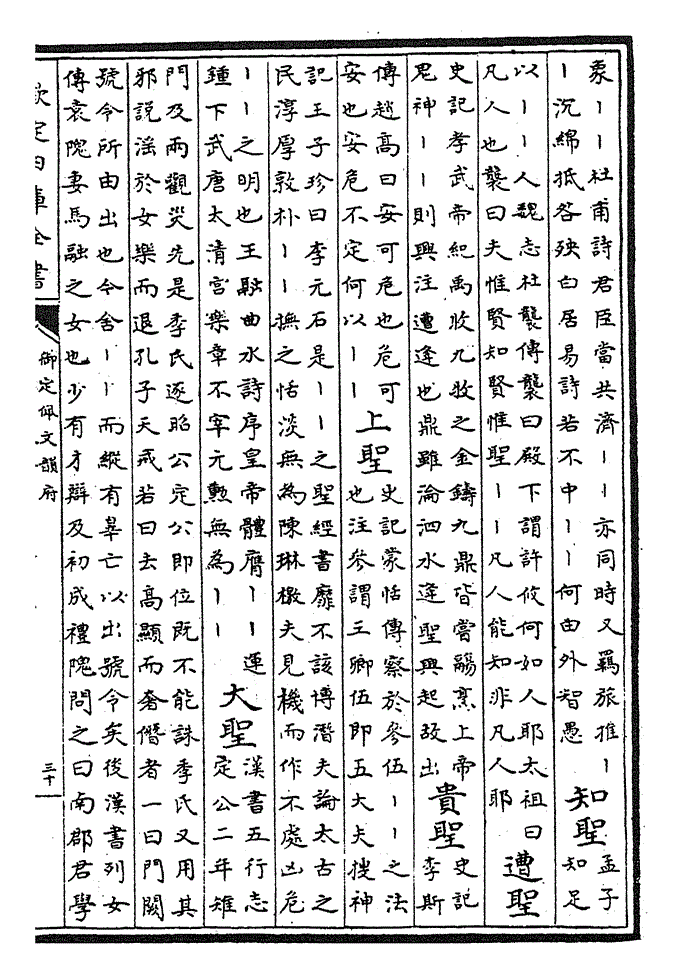 象丨丨杜甫詩君臣當共濟丨丨亦同時又羈旅推丨
丨沉綿抵咎殃白居易詩若不中丨丨何由外智愚
知聖
孟子
知足
以丨丨人魏志杜襲傳襲曰殿下謂許攸何如人耶太祖曰
凡人也襲曰夫惟賢知賢惟聖丨丨凡人能知非凡人耶
遭聖
史記孝武帝紀禹收九牧之金鑄九鼎皆嘗鬺烹上帝
鬼神丨丨則興注遭逢也鼎雖淪泗水逢聖興起故出
貴聖
史記
李斯
傳趙高曰安可危也危可
安也安危不定何以丨丨
上聖
史記蒙恬傳察於參伍丨丨之法
也注參謂三卿伍即五大夫搜神
記王子珍曰李元石是丨丨之聖經書靡不該博潛夫論太古之
民淳厚敦朴丨丨撫之恬淡無為陳琳檄夫見機而作不處凶危
丨丨之明也王融曲水詩序皇帝體膺丨丨運
鍾下武唐太清宮樂章不宰元勲無為丨丨
大聖
漢書五行志
定公二年雉
門及兩觀災先是季氏逐昭公定公即位既不能誅季氏又用其
邪說淫於女樂而退孔子天戒若曰去高顯而奢僭者一曰門闕
號令所由出也今舍丨丨而縱有辠亡以出號令矣後漢書列女
傳袁隗妻馬融之女也少有才辯及初成禮隗問之曰南郡君學
欽定四庫全書
御定佩文韻府
三十